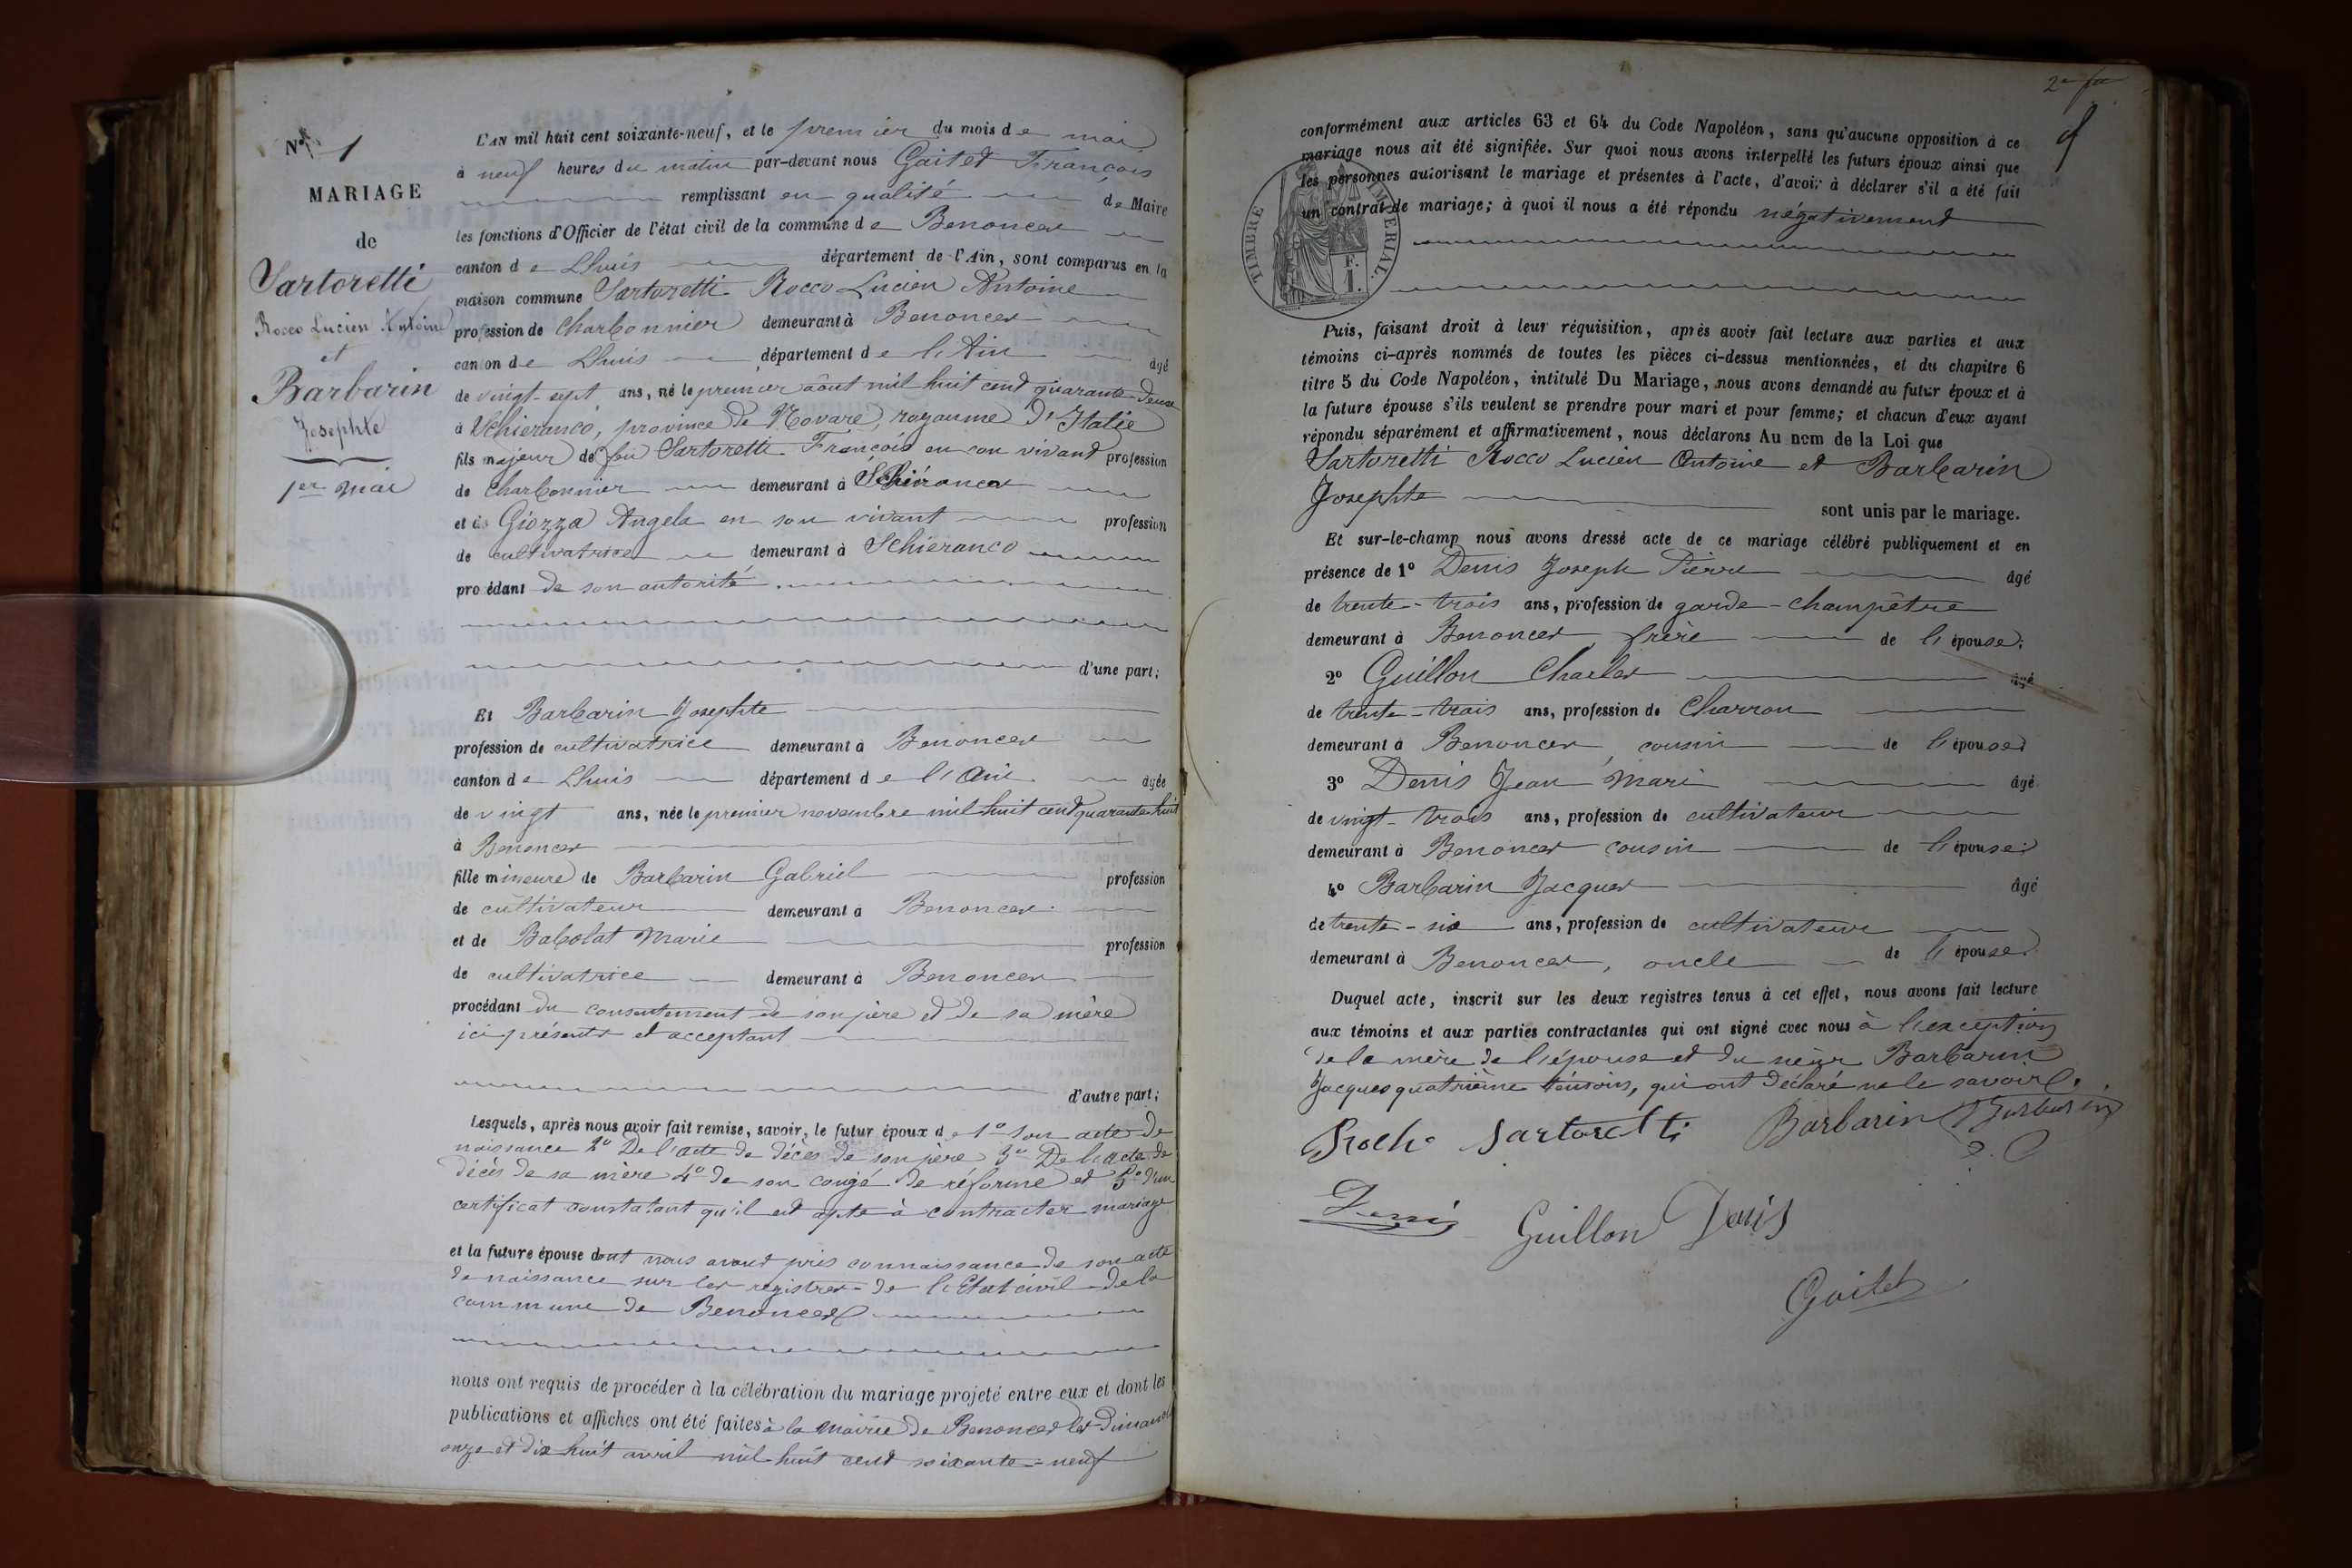 N° 1
MARIAGE
de
Sartoretti
Rocco Lucien Antoine
et
Barbarin
Josephte
1er mai
L'AN mil huit cent soixante-neuf, et le premier du mois de mai
à neuf heures du matin par-devant nous Gaitet François
remplissant en qualité de Maire
les fonctions d'Officier de l'état civil de la commune de Benonces
canton de Lhuis département de l'Ain, sont comparus en la
maison commune Sartoretti Rocco Lucien Antoine
profession de Charbonnier demeurant à Benonces
canton de Lhuis département de l'Ain âgé
de vingt-sept ans, né le premier août mil huit cent quarante-deux
à Schieranco, province de Novare, royaume d'Italie
fils majeur de feu Sartoretti François en son vivant profession
de charbonnier demeurant à Schiéranco
et de Giozza Angela en son vivant profession
de cultivatrice demeurant à Schieranco
procédant de son autorité
d'une part;
Et Barbarin Josephte
profession de cultivatrice demeurant à Benonces
canton de Lhuis département de l'Ain âgée
de vingt ans, née le premier novembre mil huit cent quarante-huit
à Benonces
fille mineure de Barbarin Gabriel profession
de cultivateur demeurant à Benonces
et de Babolat Marie profession
de cultivatrice demeurant à Benonces
procédant du consentement de son père et de sa mère
ici présents et acceptant
d'autre part;
Lesquels, après nous avoir fait remise, savoir, le futur époux de 1° son acte de
naissance 2° De l'acte de décès de son père 3° De l'acte de
décès de sa mère 4° de son congé de réforme et 5° d'un
certificat constatant qu'il est apte à contracter mariage
et la future épouse dont nous avons pris connaissance de son acte
de naissance sur les registres de l'Etat civil de la
commune de Benonces
nous ont requis de procéder à la célébration du mariage projeté entre eux et dont les
publications et affiches ont été faites à la Mairie de Benonces les Dimanches
onze et dix huit avril mil huit cent soixante-neuf
2e
conformément aux articles 63 et 64 du Code Napoléon, sans qu'aucune opposition à ce
mariage nous ait été signifiée. Sur quoi nous avons interpellé les futurs époux ainsi que
les personnes autorisant le mariage et présentes à l'acte, d'avoir à déclarer s'il a été fait
un contrat de mariage; à quoi il nous a été répondu négativement
TIMBRE IMPÉRIAL.
F.
1.
Puis, faisant droit à leur réquisition, après avoir fait lecture aux parties et aux
témoins ci-après nommés de toutes les pièces ci-dessus mentionnées, et du chapitre 6
titre 5 du Code Napoléon, intitulé Du Mariage, nous avons demandé au futur époux et à
la future épouse s'ils veulent se prendre pour mari et pour femme; et chacun d'eux ayant
répondu séparément et affirmativement, nous déclarons Au nom de la Loi que
Sartoretti Rocco Lucien Antoine et Barbarin
Josephte sont unis par le mariage.
Et sur-le-champ nous avons dressé acte de ce mariage célébré publiquement et en
présence de 1° Denis Joseph Pierre âgé
de trente-trois ans, profession de garde-champêtre
demeurant à Benonces frère de l'épouse;
2° Guillon Charles âgé
de trente-trois ans, profession de Charron
demeurant à Benonces, cousin de l'épouse;
3° Denis Jean Marie âgé
de vingt-trois ans, profession de cultivateur
demeurant à Benonces cousin de l'épouse;
4° Barbarin Jacques âgé
de trente-six ans, profession de cultivateur
demeurant à Benonces, oncle de l'épouse.
Duquel acte, inscrit sur les deux registres tenus à cet effet, nous avons fait lecture
aux témoins et aux parties contractantes qui ont signé avec nous à l'exception
de la mère de l'épouse et du sieur Barbarin
Jacques quatrième témoins, qui ont déclaré ne le savoir.
Sartoretti Barbarin Barbarin
Denis Guillon Denis
Gaitet